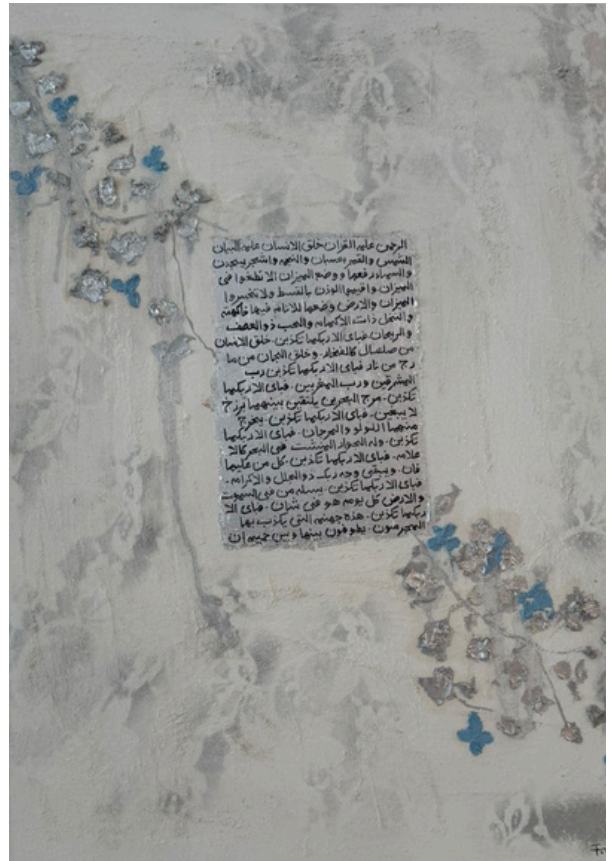 الرحمن علم القران خلق الانسان علمه البيان
الشمس والقمر بحسبان والنجم والشجر يسجدن
والسماء رفعها ووضع الميزان الا تطغوا فى
الميزان واقيموا الوزن بالقسط ولا تخسروا
الميزان والارض وضعها للانام فيها فاكهة
والنخل ذات الاكمام والحب ذو العصف
والريحان فباى الا ربكما تكذبن. خلق الانسان
من صلصال كالفخار. وخلق الجان من ما
رج من نار فباى الا ربكما تكذبن رب
المشرقين ورب المغربين. فباى الا ربكما
تكذبن. مرج البحرين يلتقين بينهما برزخ
لا يبغين. فباى الا ربكما تكذبن. يخرج
منهما اللولو والمرجان. فباى الا ربكما
تكذبن. وله الجوار المنشت فى البحر كالا
علام. فباى الا ربكما تكذبن. كل من عليها
فان. ويبقى وجه ربك ذو الجلل والاكرام.
فباى الا ربكما تكذبن. يسله من فى السموت
والارض كل يوم هو فى شان. فباى الا
ربكما تكذبن. هذه جهنم التى يكذب بها
المجرمون. يطوفون بينها وبين حميم ان